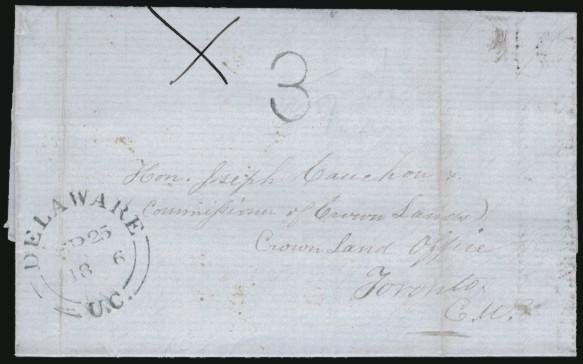 X
3
Hon. Joseph Cauchon
Commissioner of Crown Lands
Crown Land Office
Toronto.
C.W.
DELAWARE
SP 25
18 6
U.C.